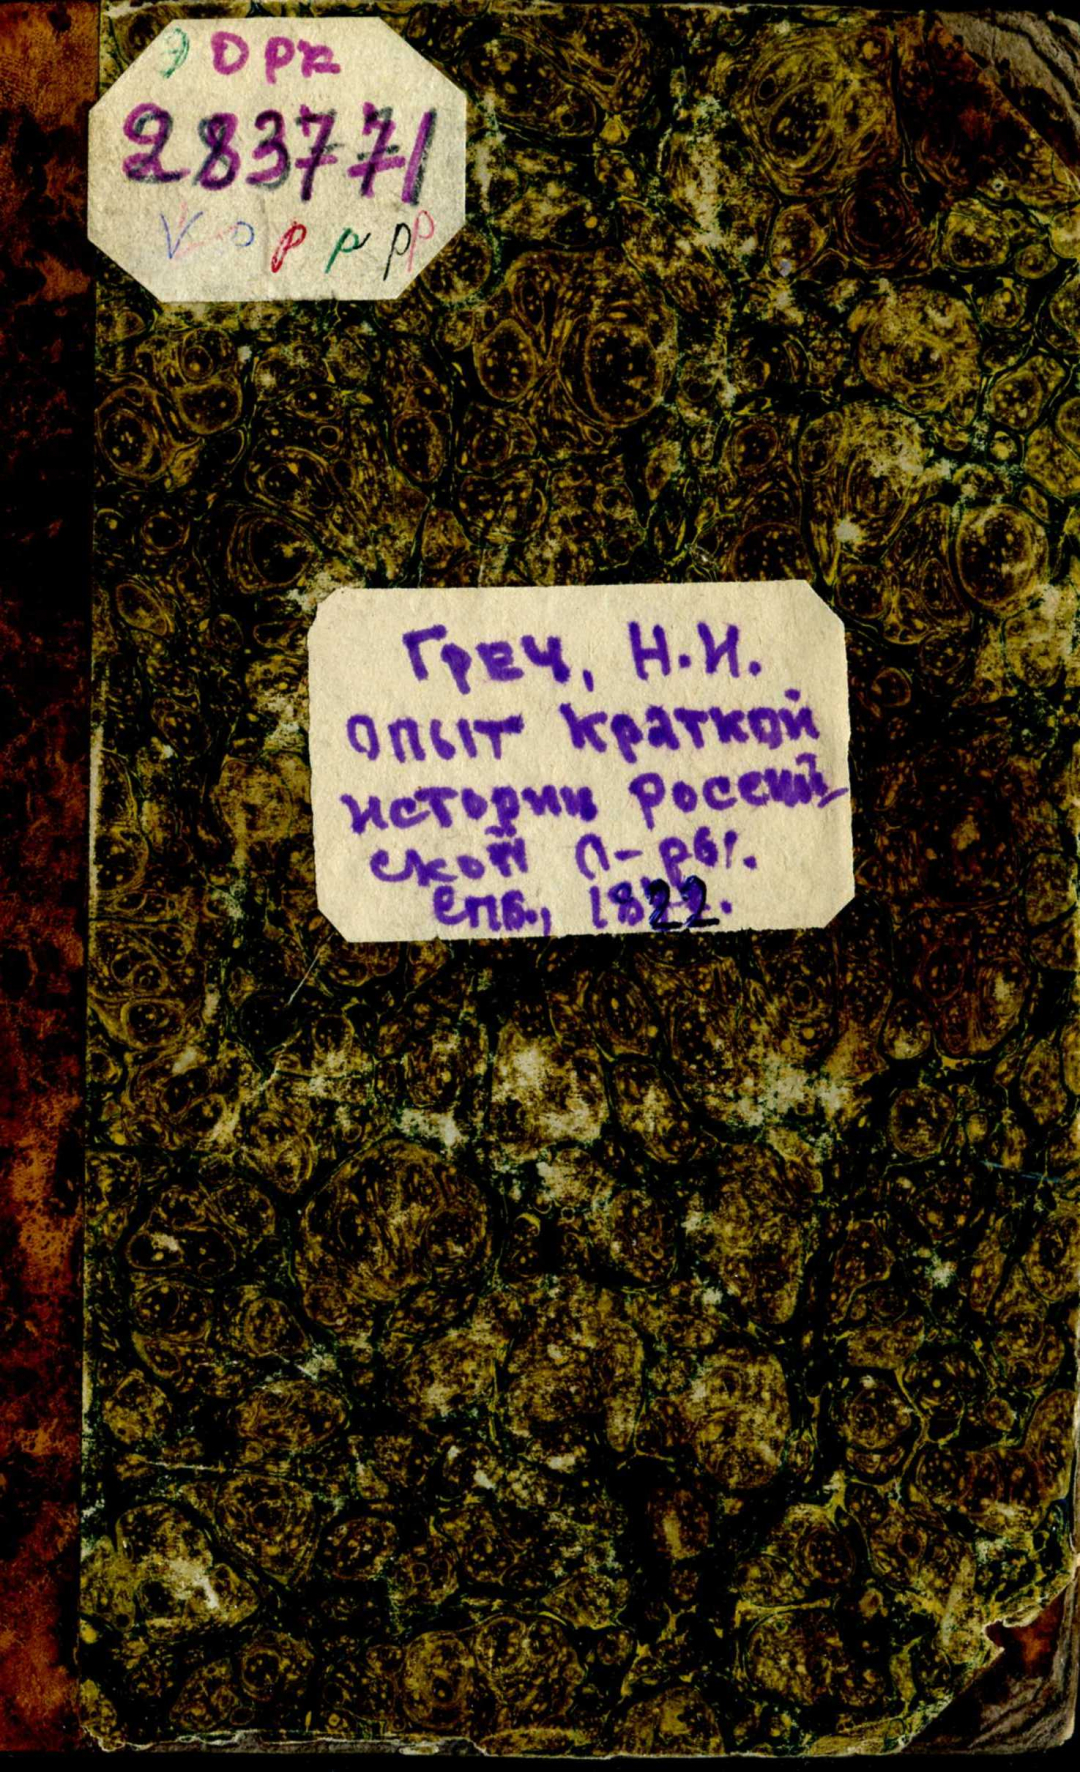 Э ОРК
283771
V о р р рр
Греч, Н.И.
Опыт краткой
истории Россий
ской л-ры.
СПб., 1822.